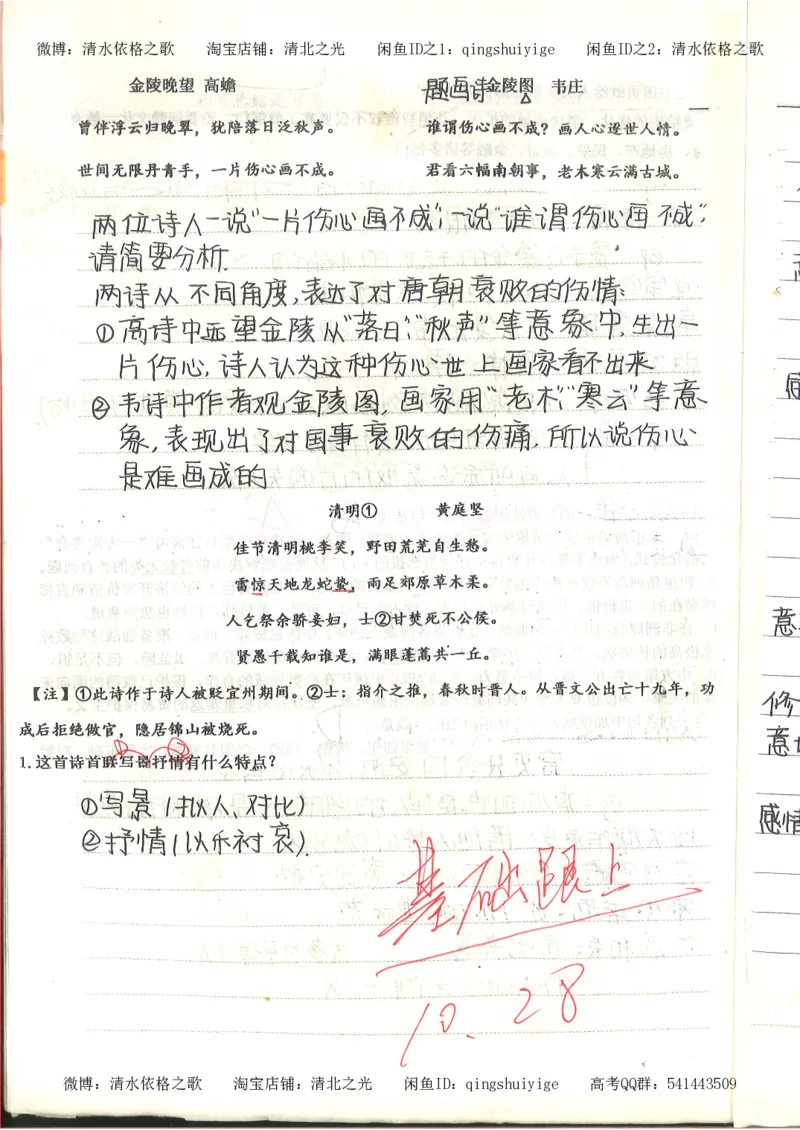 微博：清水依格之歌 淘宝店铺：清北之光 闲鱼ID之1：qingshuiyige 闲鱼ID之2：清水依格之歌
金陵晚望 高蟾
曾伴浮云归晚翠，犹陪落日泛秋声。
世间无限丹青手，一片伤心画不成。
题画诗 金陵图 韦庄
谁谓伤心画不成？画人心逐世人情。
君看六幅南朝事，老木寒云满古城。
两位诗人一说“一片伤心画不成”，一说“谁谓伤心画不成”，
请简要分析.
两诗从不同角度,表达了对唐朝衰败的伤情：
①高诗中遥望金陵从“落日”“秋声”等意象中,生出一
片伤心,诗人认为这种伤心世上画家看不出来
②韦诗中作者观金陵图,画家用“老木”“寒云”等意
象,表现出了对国事衰败的伤痛,所以说伤心
是难画成的
清明① 黄庭坚
佳节清明桃李笑，野田荒芜自生愁。
雷惊天地龙蛇蛰，雨足郊原草木柔。
人乞祭余骄妾妇，士②甘焚死不公侯。
贤愚千载知谁是，满眼蓬蒿共一丘。
【注】①此诗作于诗人被贬宜州期间。②士：指介之推，春秋时晋人。从晋文公出亡十九年，功
成后拒绝做官，隐居锦山被烧死。
1.这首诗首联写景抒情有什么特点？
①写景(拟人、对比)
②抒情(以乐衬哀)
基础跟上
10.28
感
意
修
意
感情
微博：清水依格之歌 淘宝店铺：清北之光 闲鱼ID：qingshuiyige 高考QQ群：541443509